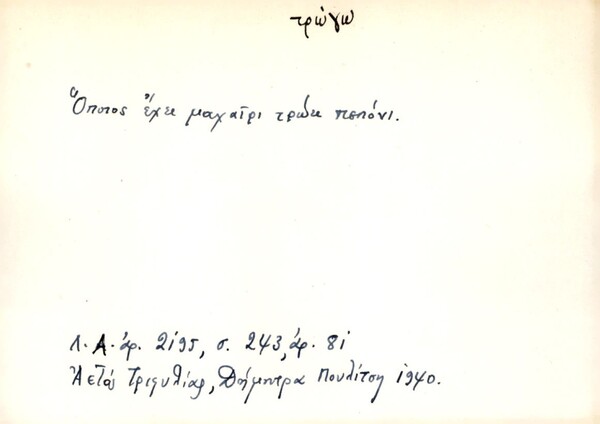 τρώγω
Ὅποιος ἔχει μαχαῖρι τρώει πεπόνι.
Λ.Α. ἀρ. 2195, σ. 243, ἀρ. 81
Ἀετὸς Τριφυλίας, Δήμητρα Πουλίτση 1940.